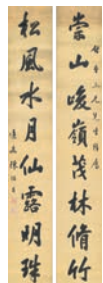 崇山峻嶺茂林脩竹
松風水月仙露明珠